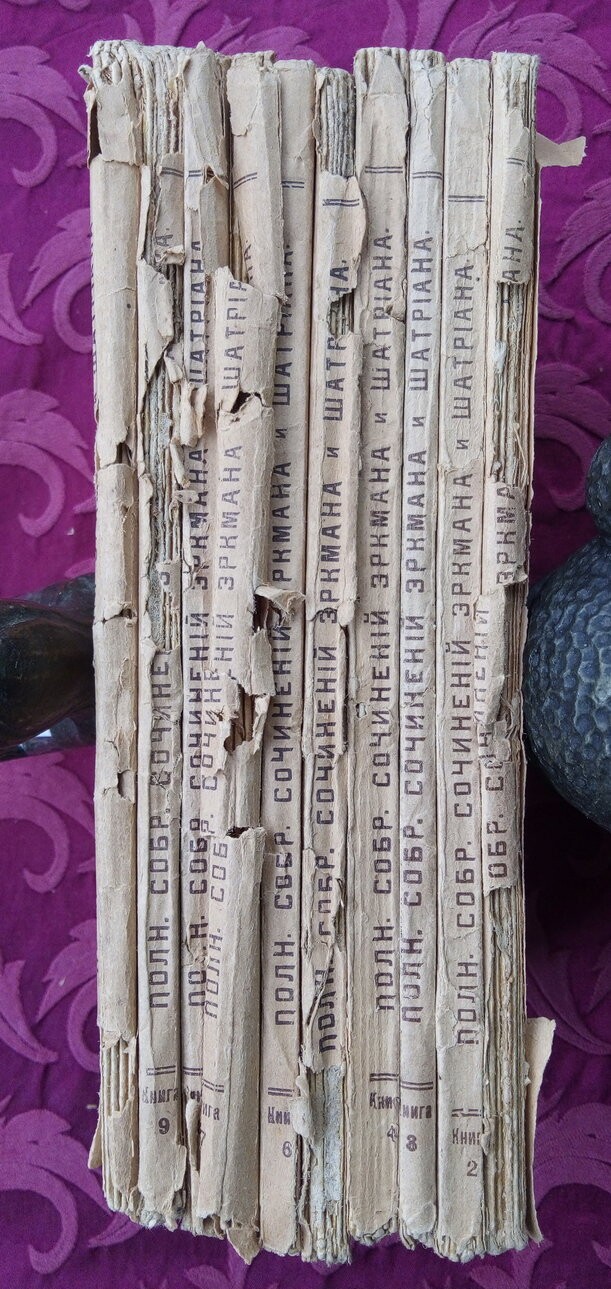 ПОЛН. СОБР. СОЧИНЕ
Книга
9
ПОЛН. СОБР. СОЧИНЕНІЙ ЭРКМАНА ШАТРІАНА
ПОЛН. СОБ НІЙ ЭРКМАНА ШАТРІ
ига
7
ПОЛН. СОБР. СОЧИНЕНІЙ РКМАНА и ШАТРІАНА.
Кни
6
ПОЛН. СОБР. СОЧИНЕНІЙ ЭРКМАНА и ШАТР НА.
ПОЛН. СОБР. СОЧИНЕНІЙ ЭРКМАНА и ШАТРІАНА.
Кни
4
ПОЛН. СОБР. СОЧИНЕНІЙ ЭРКМАНА и ШАТРІАНА.
нига
8
ПОЛН. СОБР. СОЧИНЕНІЙ ЭРКМАНА и ШАТРІАНА.
Книг
2
ОБР. СОЧИНЕНІЙ ЭРКМА АНА.